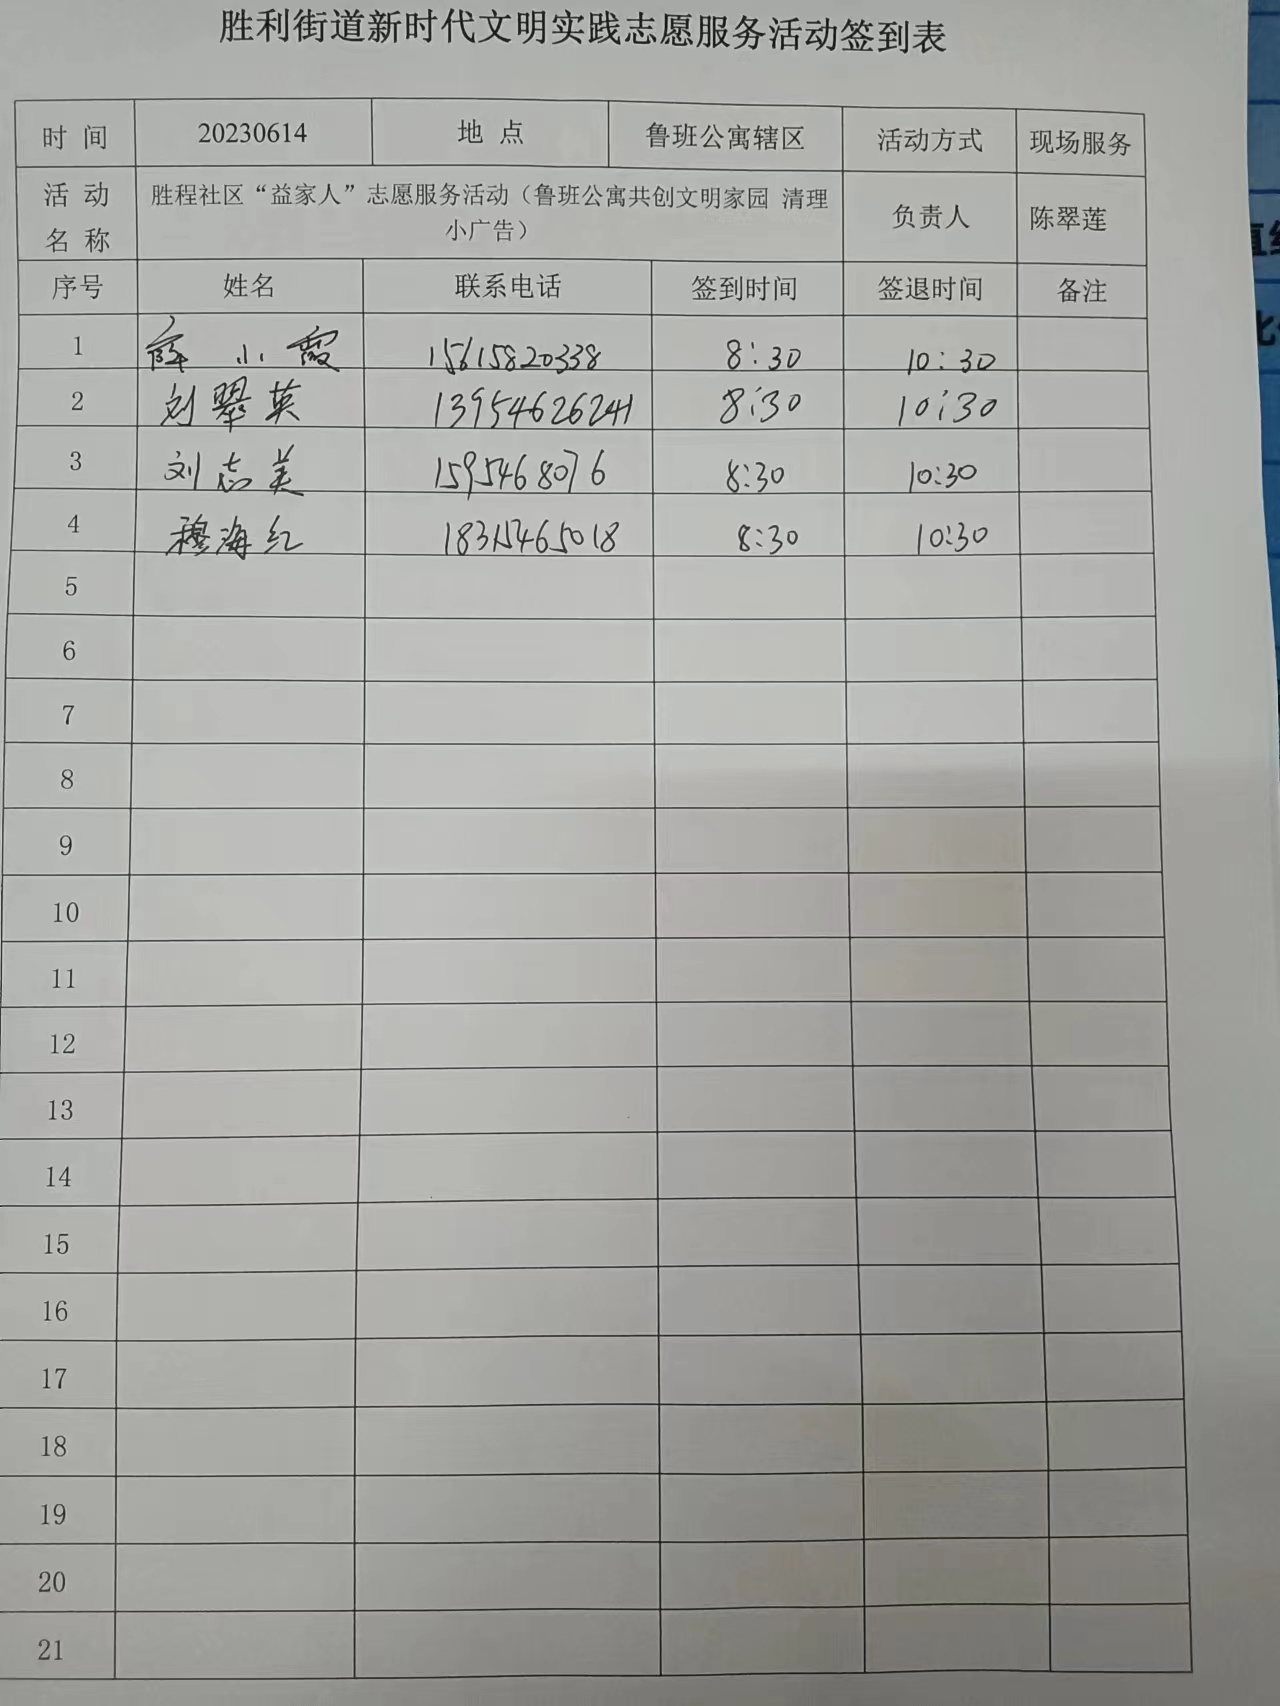 胜利街道新时代文明实践志愿服务活动签到表
时 间 20230614 地 点 鲁班公寓辖区 活动方式 现场服务
活 动 名 称 胜程社区“益家人”志愿服务活动（鲁班公寓共创文明家园 清理小广告） 负责人 陈翠莲
序号 姓名 联系电话 签到时间 签退时间 备注
1 薛小霞 15615820338 8:30 10:30
2 刘翠英 13954626241 8:30 10:30
3 刘志美 1595468076 8:30 10:30
4 穆海红 18315465018 8:30 10:30
5
6
7
8
9
10
11
12
13
14
15
16
17
18
19
20
21